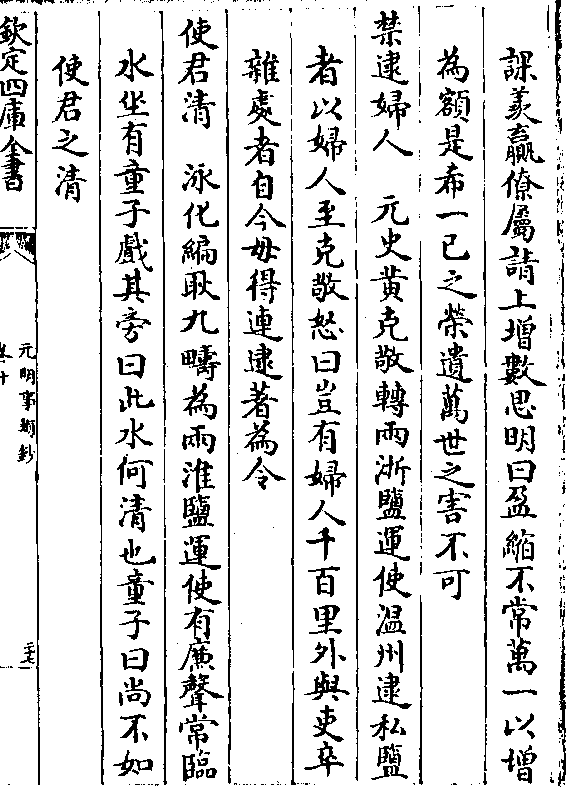 課羡贏僚屬請上增數思明曰盈縮不常萬一以增
為額是希一已之榮遺萬世之害不可
禁逮婦人　元史黄克敬轉兩浙鹽運使温州逮私鹽
者以婦人至克敬怒曰豈有婦人千百里外與吏卒
雜處者自今毋得連逮著為令
使君清　泳化編耿九疇為兩淮鹽運使有廉聲常臨
水坐有童子戲其旁曰此水何清也童子曰尚不如
使君之清
欽定四庫全書
元明事類鈔
卷十
二十七